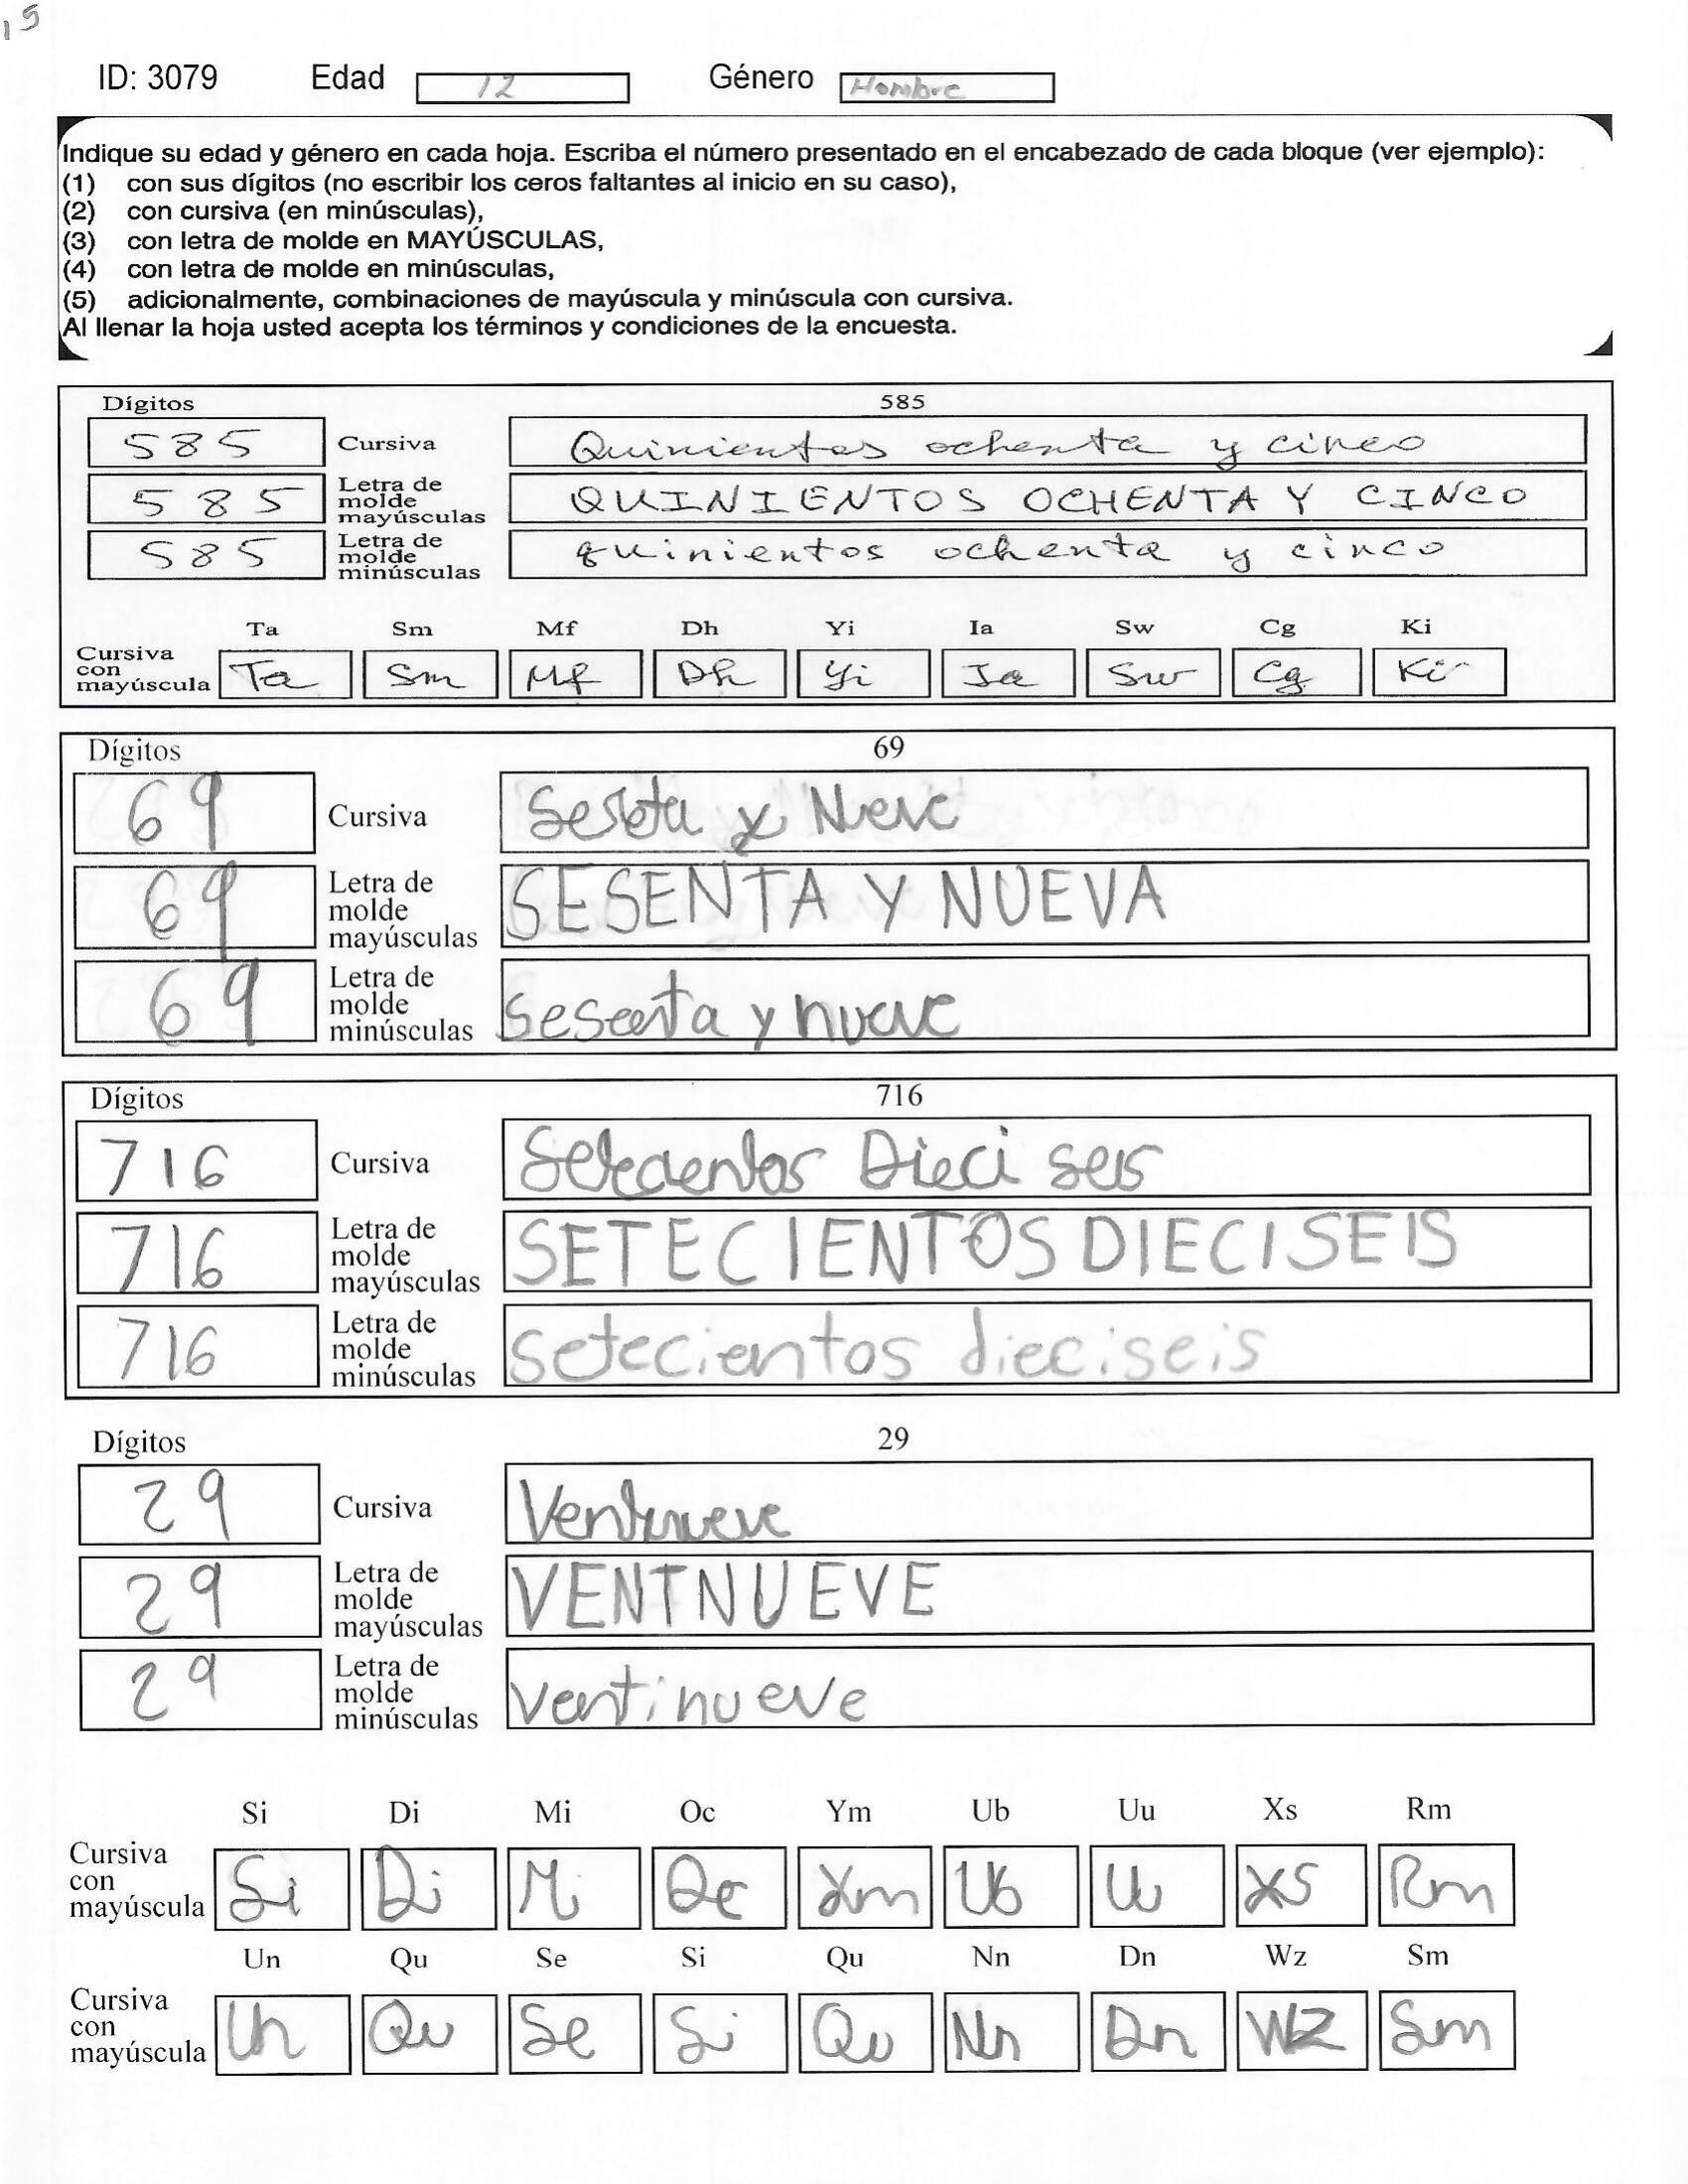 15
ID: 3079 Edad 12 Género Hombre
Indique su edad y género en cada hoja. Escriba el número presentado en el encabezado de cada bloque (ver ejemplo):
(1) con sus dígitos (no escribir los ceros faltantes al inicio en su caso),
(2) con cursiva (en minúsculas),
(3) con letra de molde en MAYÚSCULAS,
(4) con letra de molde en minúsculas,
(5) adicionalmente, combinaciones de mayúscula y minúscula con cursiva.
Al llenar la hoja usted acepta los términos y condiciones de la encuesta.
Dígitos 585
585 Cursiva Quinientos ochenta y cinco
585 Letra de molde mayúsculas QUINIENTOS OCHENTA Y CINCO
585 Letra de molde minúsculas quinientos ochenta y cinco
Ta Sm Mf Dh Yi Ia Sw Cg Ki
Cursiva con mayúscula Ta Sm Mf Dh Yi Ia Sw Cg Ki
Dígitos 69
69 Cursiva y
69 Letra de molde mayúsculas SESENTA Y NUEVA
69 Letra de molde minúsculas y nueve
Dígitos 716
716 Cursiva Setecientos Dieci seis
716 Letra de molde mayúsculas SETECIENTOS DIECISEIS
716 Letra de molde minúsculas setecientos dieciseis
Dígitos 29
29 Cursiva Ventinueve
29 Letra de molde mayúsculas VENTNUEVE
29 Letra de molde minúsculas ventinueve
Si Di Mi Oc Ym Ub Uu Xs Rm
Cursiva con mayúscula Si Di Mi Oc Ym Ub Uu Xs Rm
Un Qu Se Si Qu Nn Dn Wz Sm
Cursiva con mayúscula Un Qu Se Si Qu Nn Dn Wz Sm